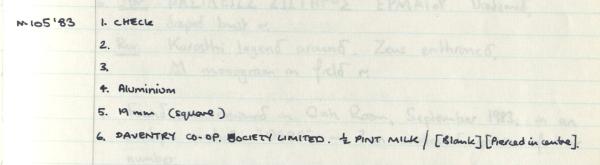 M105'83 1. CHECK
2.
3.
4. Aluminium
5. 19 mm (square)
6. DAVENTRY CO-OP. SOCIETY LIMITED. ½ PINT MILK / [Blank] [Pierced in centre].